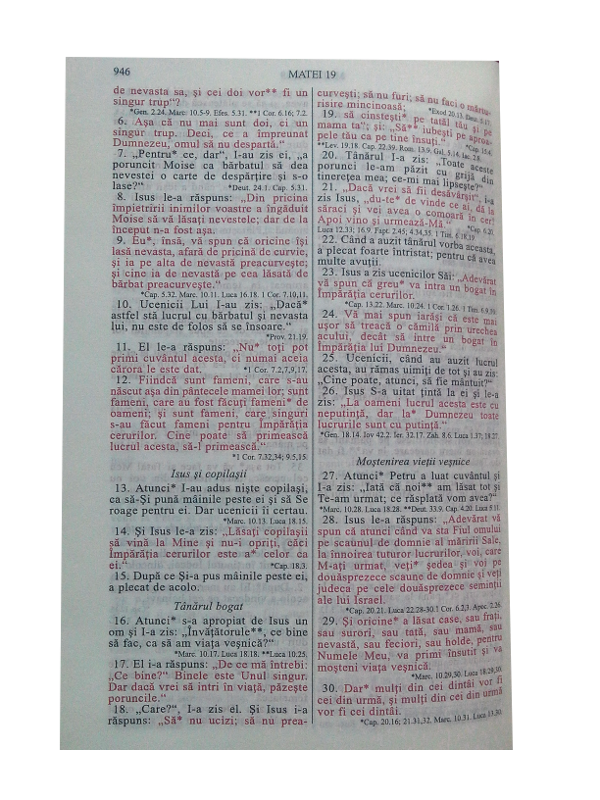 946
MATEI 19
de nevasta sa, şi cei doi vor** fi un
singur trup“?
*Gen. 2.24. Marc. 10.5-9. Efen. 5.31. **1 Cor. 6.16; 7.2.
6. Aşa că nu mai sunt doi, ci un
singur trup. Deci, ce a împreunat
Dumnezeu, omul să nu despartă.“
7. „Pentru* ce, dar“, I-au zis ei, „a
poruncit Moise ca bărbatul să dea
nevestei o carte de despărţire şi s-o
lase?“
*Deut. 24.1. Cap. 5.31.
8. Isus le-a răspuns: „Din pricina
împietririi inimilor voastre a îngăduit
Moise să vă lăsaţi nevestele; dar de la
început n-a fost aşa.
9. Eu*, însă, vă spun că oricine îşi
lasă nevasta, afară de pricină de curvie,
şi ia pe alta de nevastă preacurveşte;
şi cine ia de nevastă pe cea lăsată de
bărbat preacurveşte.“
*Cap. 5.32. Marc. 10.11. Luca 16.18. 1 Cor. 7.10,11.
10. Ucenicii Lui I-au zis: „Dacă*
astfel stă lucrul cu bărbatul şi nevasta
lui, nu este de folos să se însoare.“
*Prov. 21.19.
11. El le-a răspuns: „Nu* toţi pot
primi cuvântul acesta, ci numai aceia
cărora le este dat.
*1 Cor. 7.2,7,9,17.
12. Fiindcă sunt fameni, care s-au
născut aşa din pântecele mamei lor; sunt
fameni, care au fost făcuţi fameni* de
oameni; şi sunt fameni, care singuri
s-au făcut fameni pentru Împărăţia
cerurilor. Cine poate să primească
lucrul acesta, să-l primească.“
*1 Cor. 7.32,34; 9.5,15.
Isus şi copilaşii
13. Atunci* I-au adus nişte copilaşi,
ca să-Şi pună mâinile peste ei şi să Se
roage pentru ei. Dar ucenicii îi certau.
*Marc. 10.13. Luca 18.15.
14. Şi Isus le-a zis: „Lăsaţi copilaşii
să vină la Mine şi nu-i opriţi, căci
Împărăţia cerurilor este a* celor ca
ei.“
*Cap. 18.3.
15. După ce Şi-a pus mâinile peste ei,
a plecat de acolo.
Tânărul bogat
16. Atunci* s-a apropiat de Isus un
om şi I-a zis: „Învăţătorule**, ce bine
să fac, ca să am viaţa veşnică?“
*Marc. 10.17. Luca 18.18. **Luca 10.25.
17. El i-a răspuns: „De ce mă întrebi:
„Ce bine?“ Binele este Unul singur.
Dar dacă vrei să intri în viaţă, păzeşte
poruncile.“
18. „Care?“, I-a zis el. Şi Isus i-a
răspuns: „Să* nu ucizi; să nu prea-
curveşti; să nu furi; să nu faci o mărtu-
risire mincinoasă;
*Exod 20.13. Deut. 5.17.
19. să cinsteşti* pe tatăl tău şi pe
mama ta“; şi: „Să** iubeşti pe aproa-
pele tău ca pe tine însuţi.“
*Cap. 15.4.
**Lev. 19.18. Cap. 22.39. Rom. 13.9. Gal. 5.14. Iac. 2.8.
20. Tânărul I-a zis: „Toate aceste
porunci le-am păzit cu grijă din
tinereţea mea; ce-mi mai lipseşte?“
21. „Dacă vrei să fii desăvârşit“, i-a
zis Isus, „du-te* de vinde ce ai, dă la
săraci şi vei avea o comoară în cer!
Apoi vino şi urmează-Mă.“
*Cap. 6.20.
Luca 12.33; 16.9. Fapt. 2.45; 4.34,35. 1 Tim. 6.18,19.
22. Când a auzit tânărul vorba aceasta,
a plecat foarte întristat; pentru că avea
multe avuţii.
23. Isus a zis ucenicilor Săi: „Adevărat
vă spun că greu* va intra un bogat în
Împărăţia cerurilor.
*Cap. 13.22. Marc. 10.24. 1 Cor. 1.26. 1 Tim. 6.9,10.
24. Vă mai spun iarăşi că este mai
uşor să treacă o cămilă prin urechea
acului, decât să intre un bogat în
Împărăţia lui Dumnezeu.“
25. Ucenicii, când au auzit lucrul
acesta, au rămas uimiţi de tot şi au zis:
„Cine poate, atunci, să fie mântuit?“
26. Isus S-a uitat ţintă la ei şi le-a
zis: „La oameni lucrul acesta este cu
neputinţă, dar la* Dumnezeu toate
lucrurile sunt cu putinţă.“
*Gen. 18.14. Iov 42.2. Ier. 32.17. Zah. 8.6. Luca 1.37; 18.27.
Moştenirea vieţii veşnice
27. Atunci* Petru a luat cuvântul şi
I-a zis: „Iată că noi** am lăsat tot şi
Te-am urmat; ce răsplată vom avea?“
*Marc. 10.28. Luca 18.28. **Deut. 33.9. Cap. 4.20. Luca 5.11.
28. Isus le-a răspuns: „Adevărat vă
spun că atunci când va sta Fiul omului
pe scaunul de domnie al măririi Sale,
la înnoirea tuturor lucrurilor, voi, care
M-aţi urmat, veţi* şedea şi voi pe
douăsprezece scaune de domnie şi veţi
judeca pe cele douăsprezece seminţii
ale lui Israel.
*Cap. 20.21. Luca 22.28-30.1 Cor. 6.2,3. Apoc. 2.26.
29. Şi oricine* a lăsat case, sau fraţi,
sau surori, sau tată, sau mamă, sau
nevastă, sau feciori, sau holde, pentru
Numele Meu, va primi însutit şi va
moşteni viaţa veşnică.
*Marc. 10.29,30. Luca 18.29,30.
30. Dar* mulţi din cei dintâi vor fi
cei din urmă, şi mulţi din cei din urmă
vor fi cei dintâi.
*Cap. 20,16; 21.31,32. Marc. 10.31. Luca 13.30.